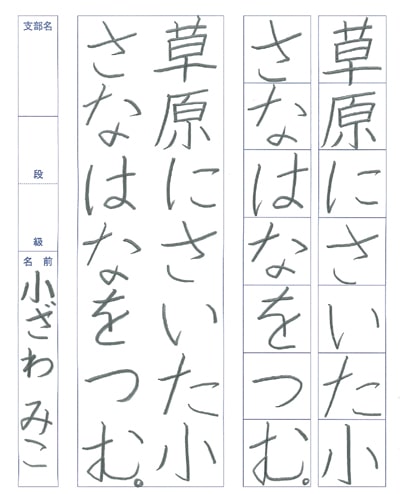 草原にさいた小
さなはなをつむ。
草原にさいた小
さなはなをつむ。
支部名
段
級
名前
小ざわ みこ